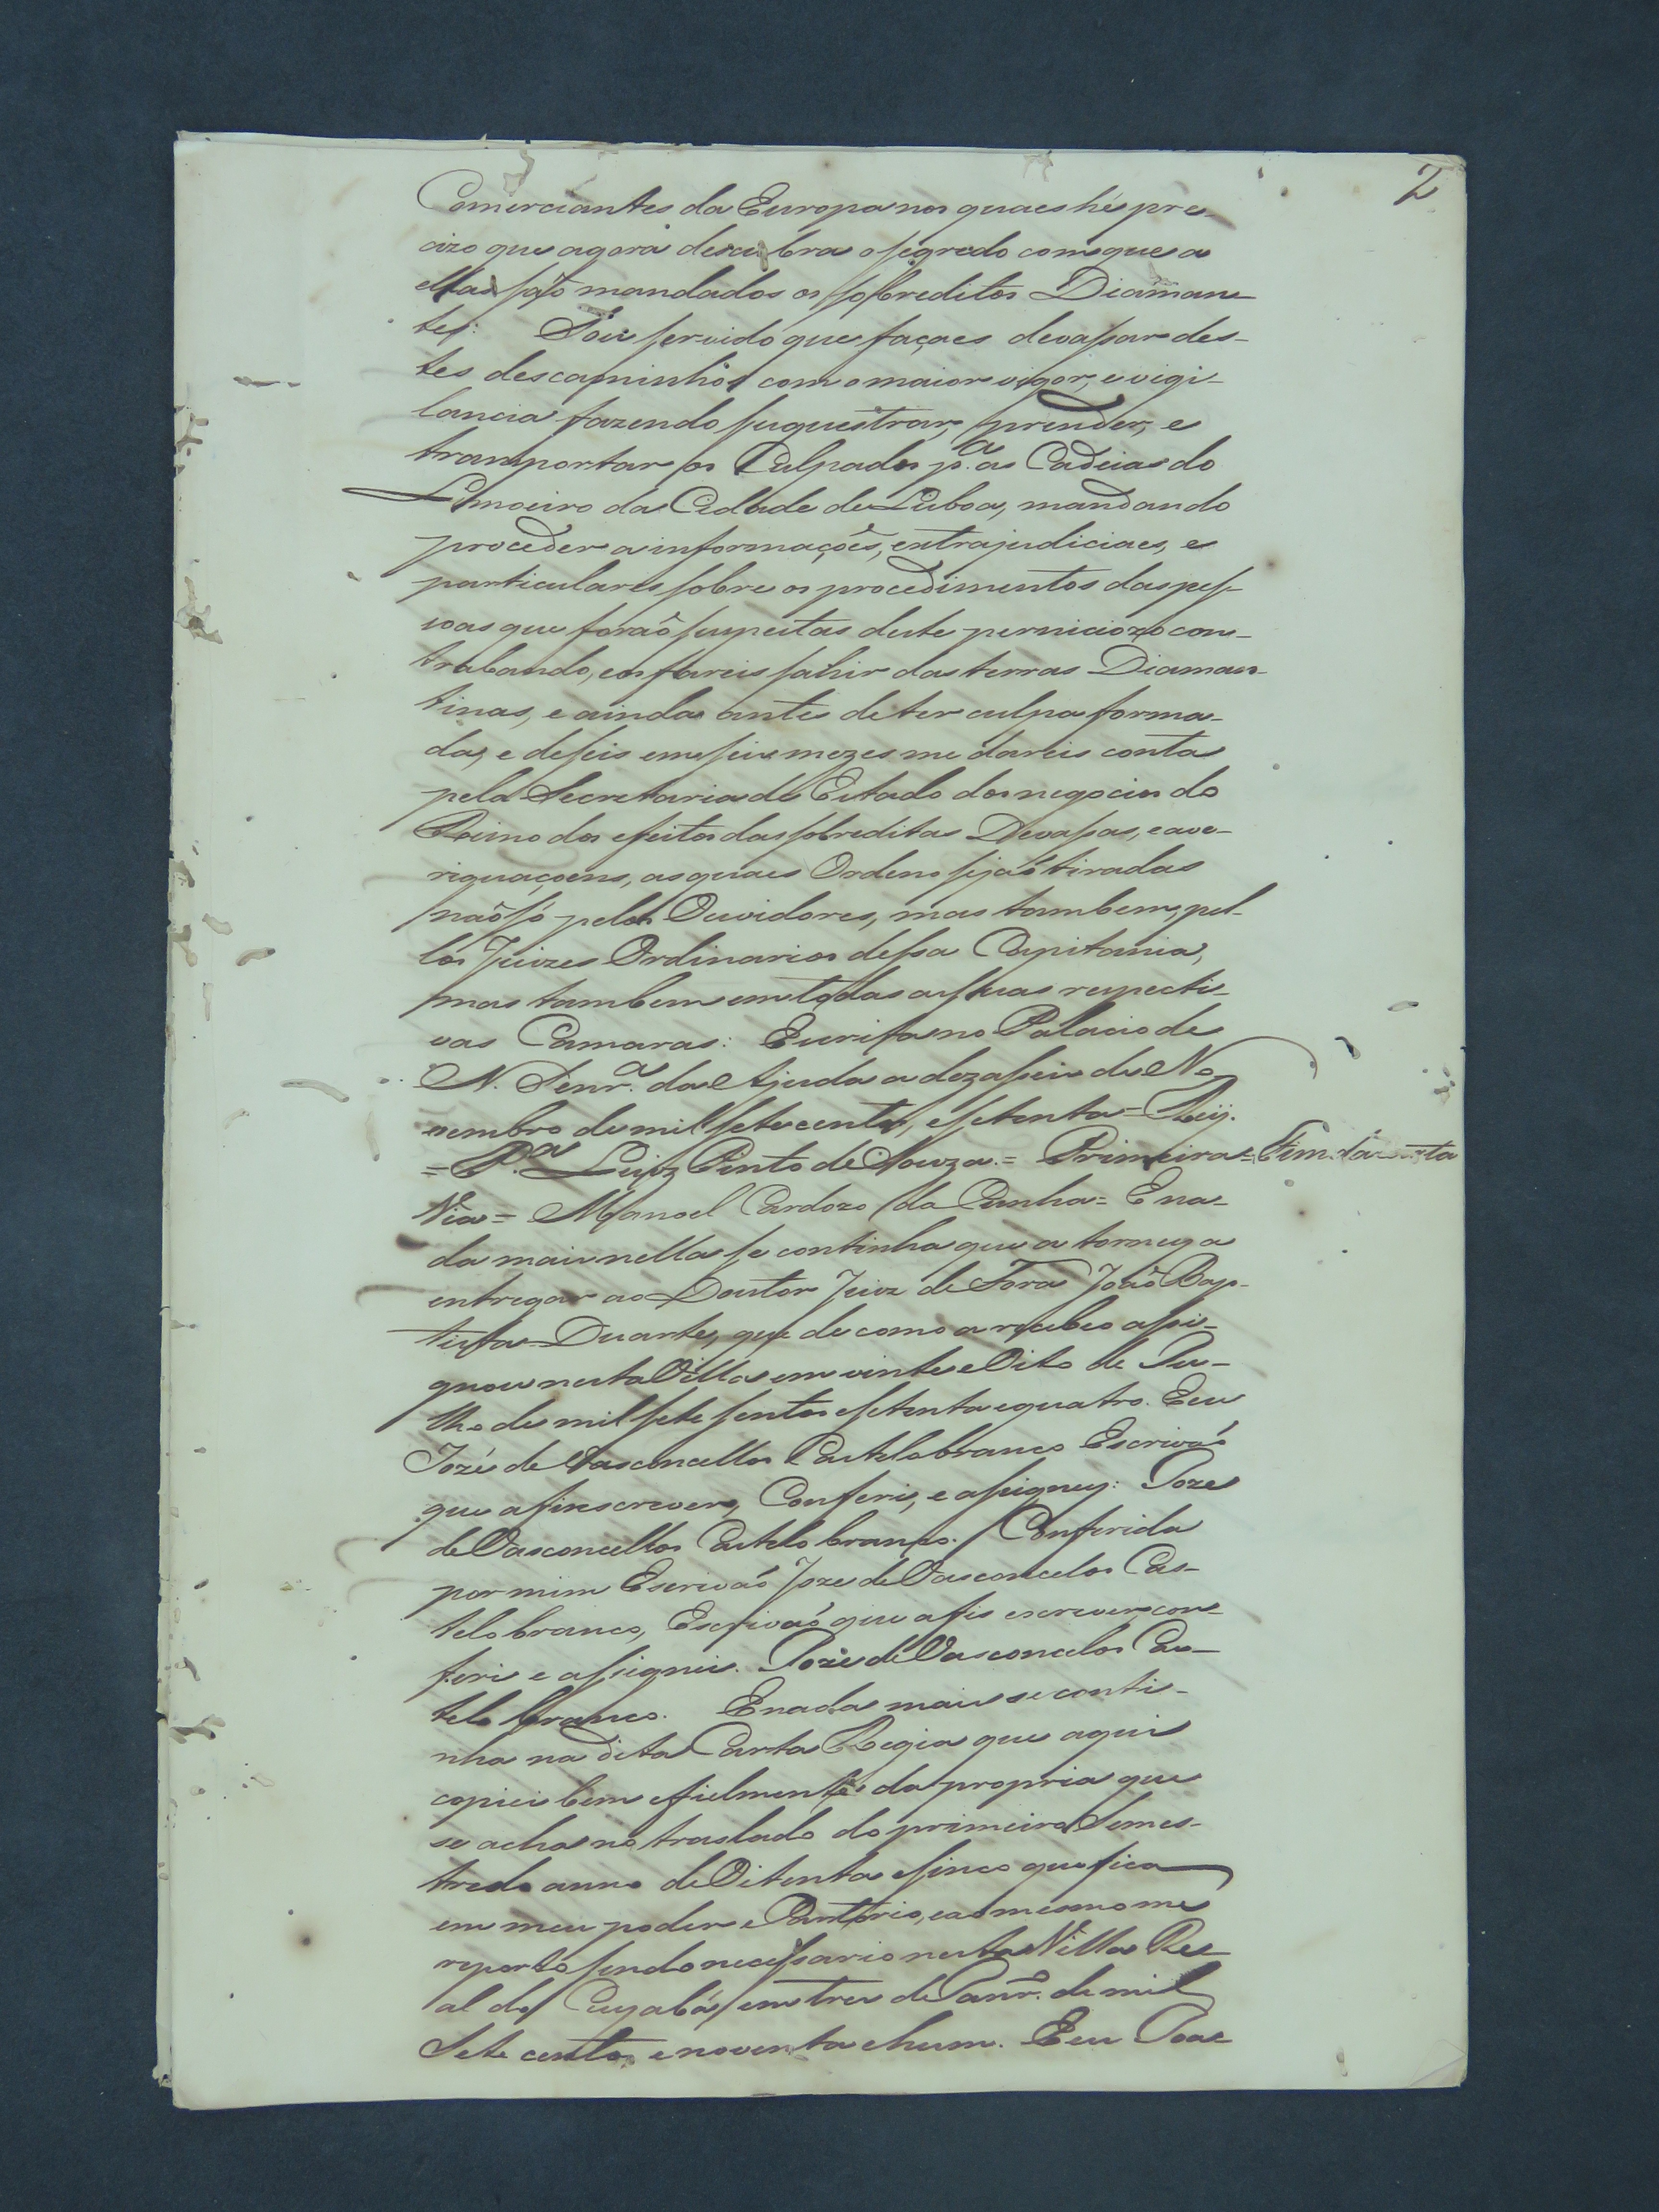 2
Comerciantes da Europa nos quaes hé pre-
cizo que agora descubra o segredo com que a
ellas saõ mandados os sobreditos Diaman-
tes: Sou servido que façaes devassar des-
tes descaminhos com o maior vigor, e vigi-
lancia fazendo suquestrar, prender, e
transportar os Culpados p.ª as Cadeias do
Limoeiro da Cidade de Lisboa, mandando
proceder a informaçoẽs, extrajudiciaes, e
particulares sobre os procedimentos das pes-
soas que foraõ suspeitas deste perniciozo con-
trabando, e os fareis sahir das terras Diaman-
tinas, e ainda antes de ter culpa forma-
da, e de seis em seis mezes me dareis conta
pela Secretaria de Estado dos negocios do
Reino dos efeitos das sobreditas Devassas, e ave-
riguaçoens, as quaes Ordeno sejaõ tiradas
naõ só pelos Ouvidores, mas tambem, pel-
los Juizes Ordinarios dessa Capitania,
mas tambem em todas as suas respecti-
vas Camaras: Escrita no Palacio de
N. Senr.ª da Ajuda a dezaseis de No-
vembro de mil setecentos, e setenta = Rey.
= P.ª Luiz Pinto de Souza. = Primeira = Fim da Carta
Via = Manoel Cardozo da Cunha = E na-
da mais nella se continha que a torney a
entregar ao Doutor Juiz de Fora Joaõ Bap-
tista Duarte, que de como a recebeo assi-
gnou nesta Villa em vinte e Oito de Ju-
lho de mil sete sentos e setenta e quatro. E eu
Jozé de Vasconcellos Castelobranco Escrivaõ
que a fis escrever, Conferi, e assigney: Joze
de Vasconcellos Castelo branco. / Conferida
por mim Escrivaõ Joze de Vasconcelos Cas-
telo branco, Escrivaõ que a fis escrever con-
feri e assignei. Joze de Vasconcelos Cas-
telo branco. E nada mais se conti-
nha na dita Carta Regia que aqui
copiei bem e fielmente da propria que
se acha no traslado do primeiro Semes-
tre do anno de Oitenta e sinco que fica
em meu poder e Cartorio, e ao mesmo me
reporto sendo necessario nesta Villa Re-
al do Cuyabá em tres de Janr.º de mil
Sete centos e noventa e hum. E eu Joze